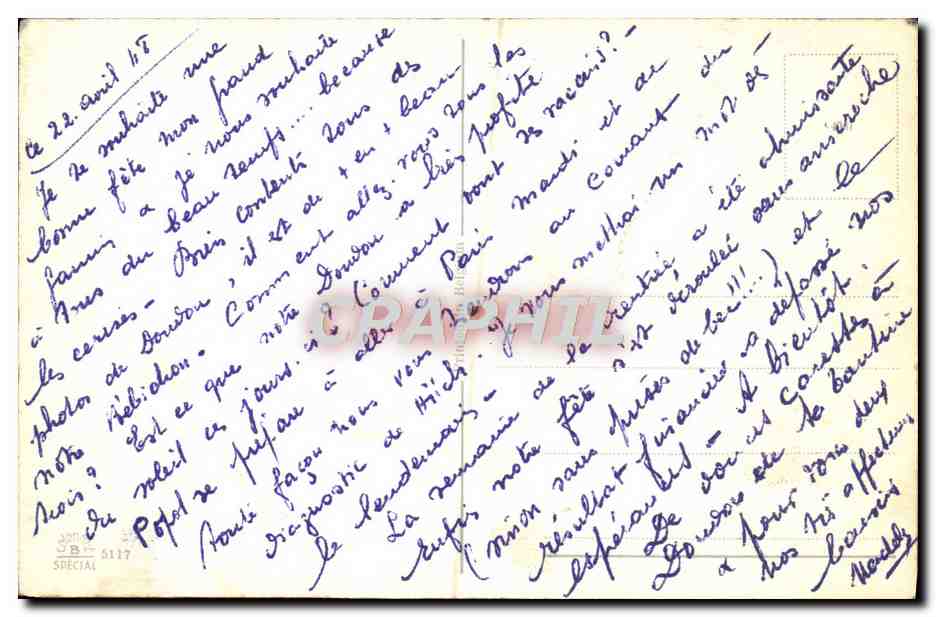 ce 22 avril
Je te souhaite une
bonne fête mon grand
& je nous souhaite
à tous du beau temps... because
les cerises - Bien contents tous des
photos de Doudou, il est de + en + beau
notre Bébichon. Comment allez-vous tous les
trois? Est ce que notre Doudou a bien profité
du soleil ces jours. ci? Comment vont ses racines? -
Popol se prépare à aller à Paris mardi et de
toute façon nous vous tiendrons au courant du
diagnostic de Hich. Je vous mettrai un mot dès
le lendemain -
La semaine de la rentrée a été ahurissante
Enfin notre fête s'est déroulé sans anicroche
(sinon sans prises de bec!!...) et le
résultat financier a dépassé nos
espérances - A bientôt.
De
Doudou de
& pour vous deux
nos très affectueux
baisers
CRAPHIL
5117
SPECIAL